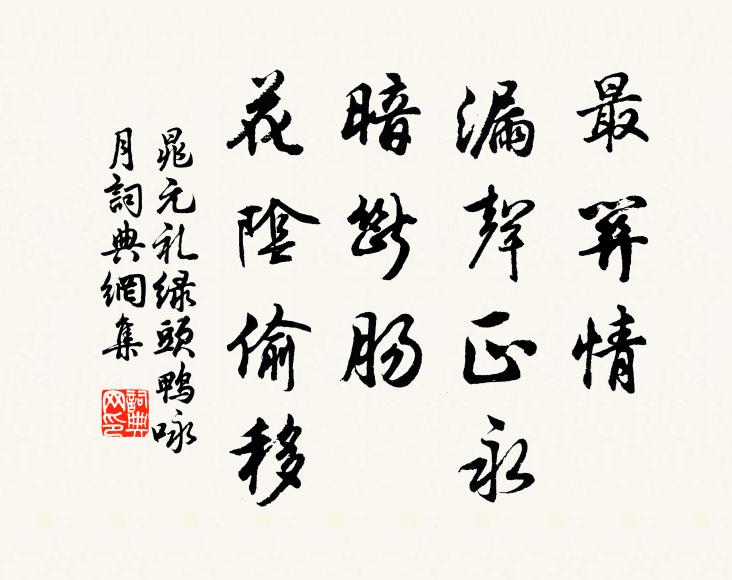 最關情
漏聲正永
暗斷腸
花陰偷移
晁元礼绿頭鴨咏
月詞典網集
詞典
网印